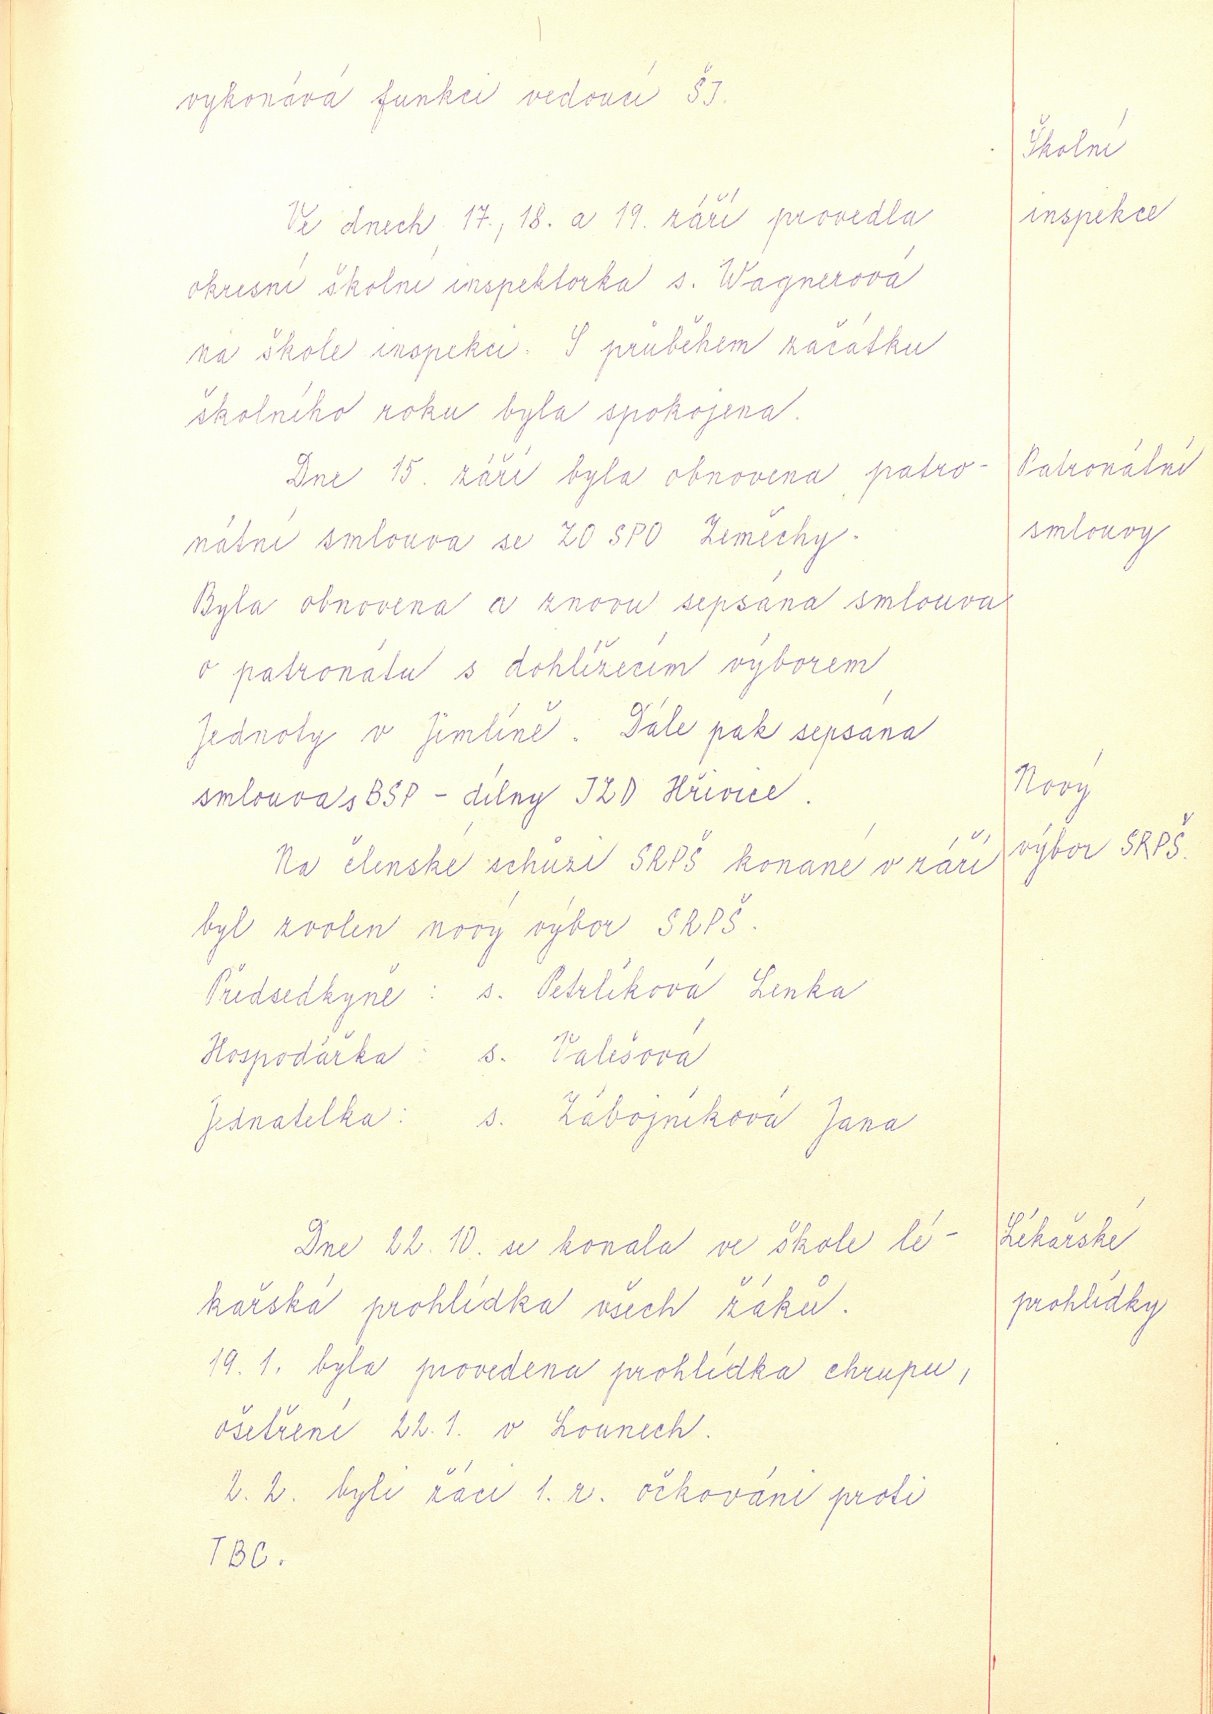 vykonává funkci vedoucí ŠJ.
Školní
Ve dnech 17., 18. a 19. září provedla
inspekce
okresní školní inspektorka s. Wágnerová
na škole inspekci. S průběhem začátku
školního roku byla spokojena.
Dne 15. září byla obnovena patro-
Patronátní
nátní smlouva se ZO SPO Zeměchy.
smlouvy
Byla obnovena a znovu sepsána smlouva
o patronátu s dohlížecím výborem
Jednoty v Jimlíně. Dále pak sepsána
smlouva s BSP - dílny JZD Hřivice.
Nový
Na členské schůzi SRPŠ konané v září
výbor SRPŠ.
byl zvolen nový výbor SRPŠ.
Předsedkyně : s. Petrlíková Lenka
Hospodářka : s. Valešová
Jednatelka : s. Zábojníková Jana
Dne 22. 10. se konala ve škole lé-
Lékařské
kařská prohlídka všech žáků.
prohlídky
19. 1. byla provedena prohlídka chrupu,
ošetření 22. 1. v Lounech.
2. 2. byli žáci 1. r. očkováni proti
TBC.